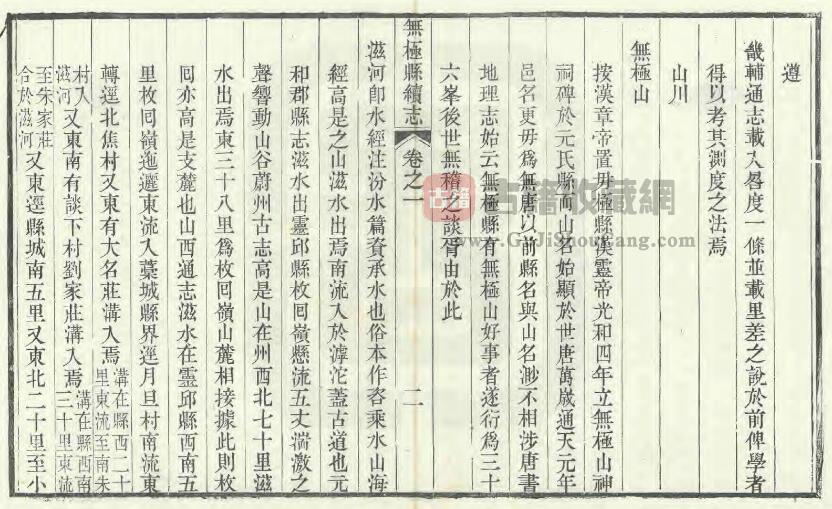 遵
畿輔通志載入晷度一條並載里差之說於前俾學者
得以考其測度之法焉
山川
無極山
按漢章帝置毋極縣漢靈帝光和四年立無極山神
祠碑於元氏縣而山名始顯於世唐萬歲通天元年
邑名更毋為無唐以前縣名與山名渺不相涉唐書
地理志始云無極縣有無極山好事者遂衍為三十
六峯後世無稽之談胥由於此
無極縣續志
卷之一
二
滋河卽水經注汾水篇資承水也俗本作容乘水山海
經高是之山滋水出焉南流入於滹沱蓋古道也元
和郡縣志滋水出靈邱縣枚囘嶺懸流五丈湍激之
聲響動山谷蔚州古志高是山在州西北七十里滋
水出焉東三十八里為枚囘嶺山麓相接據此則枚
囘亦高是支麓也山西通志滋水在靈邱縣西南五
里枚囘嶺迤邐東流入藁城縣界逕月旦村南流東
轉逕北焦村又東有大名莊溝入焉溝在縣西二十
里東流至南朱
村入
滋河又東南有談下村劉家莊溝入焉溝在縣西南
三十里東流
至朱家莊
合於滋河又東逕縣城南五里又東北二十里至小
古籍
古籍收藏網
www.GuJiShouCang.com